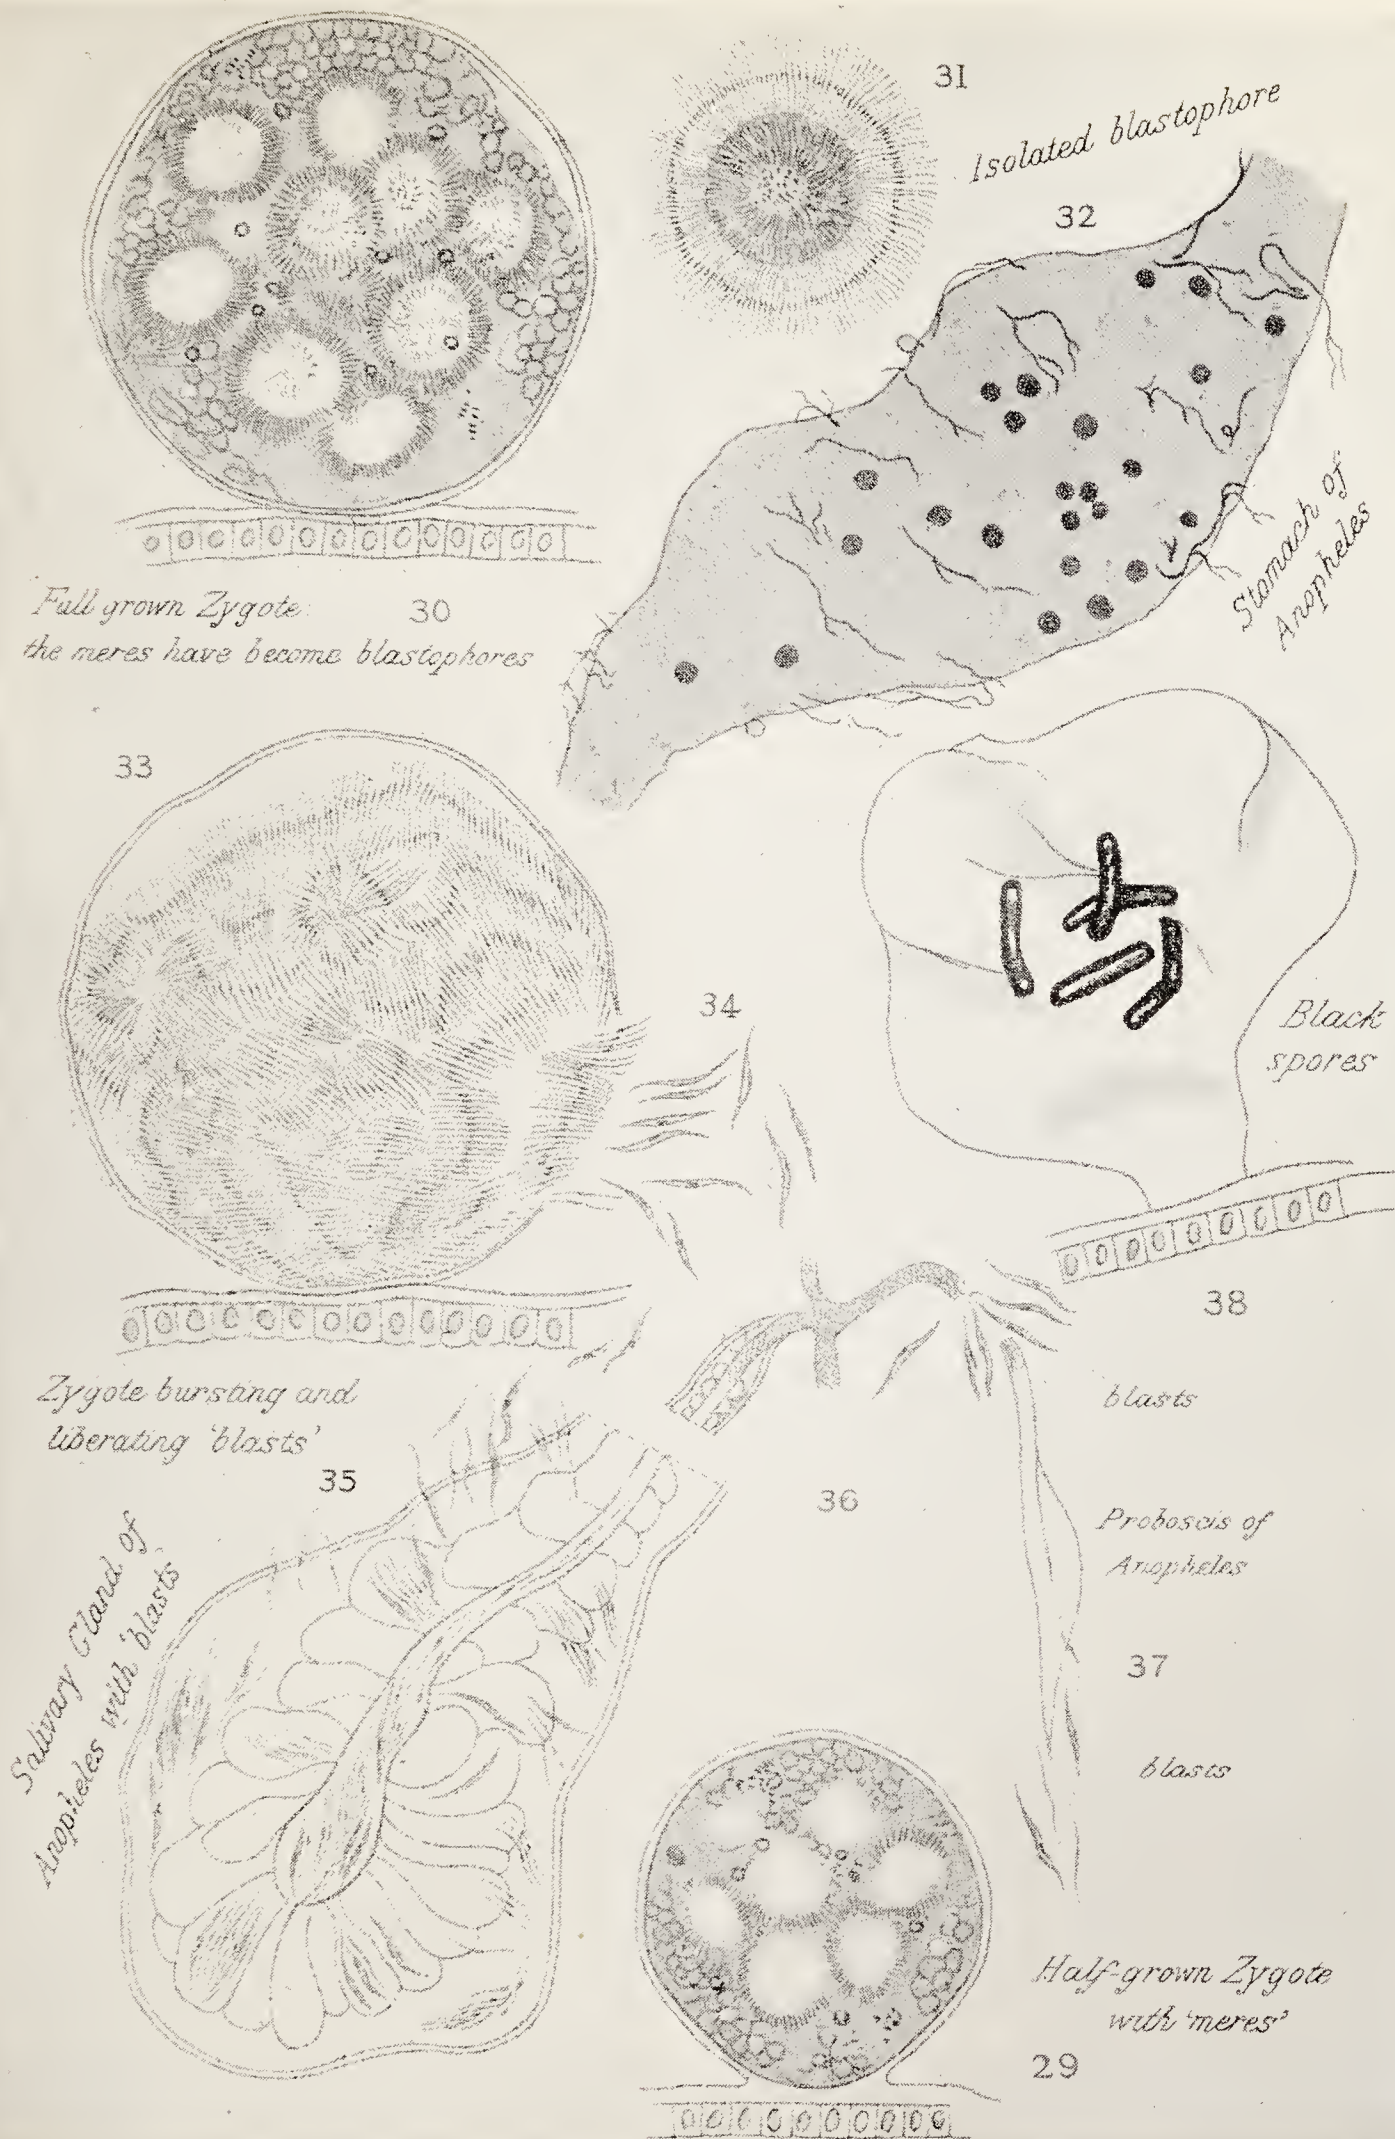 31
Isolated blastophore
32
Stomach of
Anopheles
Full grown Zygote:
30
the meres have become blastophores
33
34
Black
spores
38
Zygote bursting and
liberating 'blasts'
35
blasts
36
Proboscis of
Anopheles
Salivary Gland of
Anopheles with 'blasts
37
blasts
Half-grown Zygote
with 'meres'
29